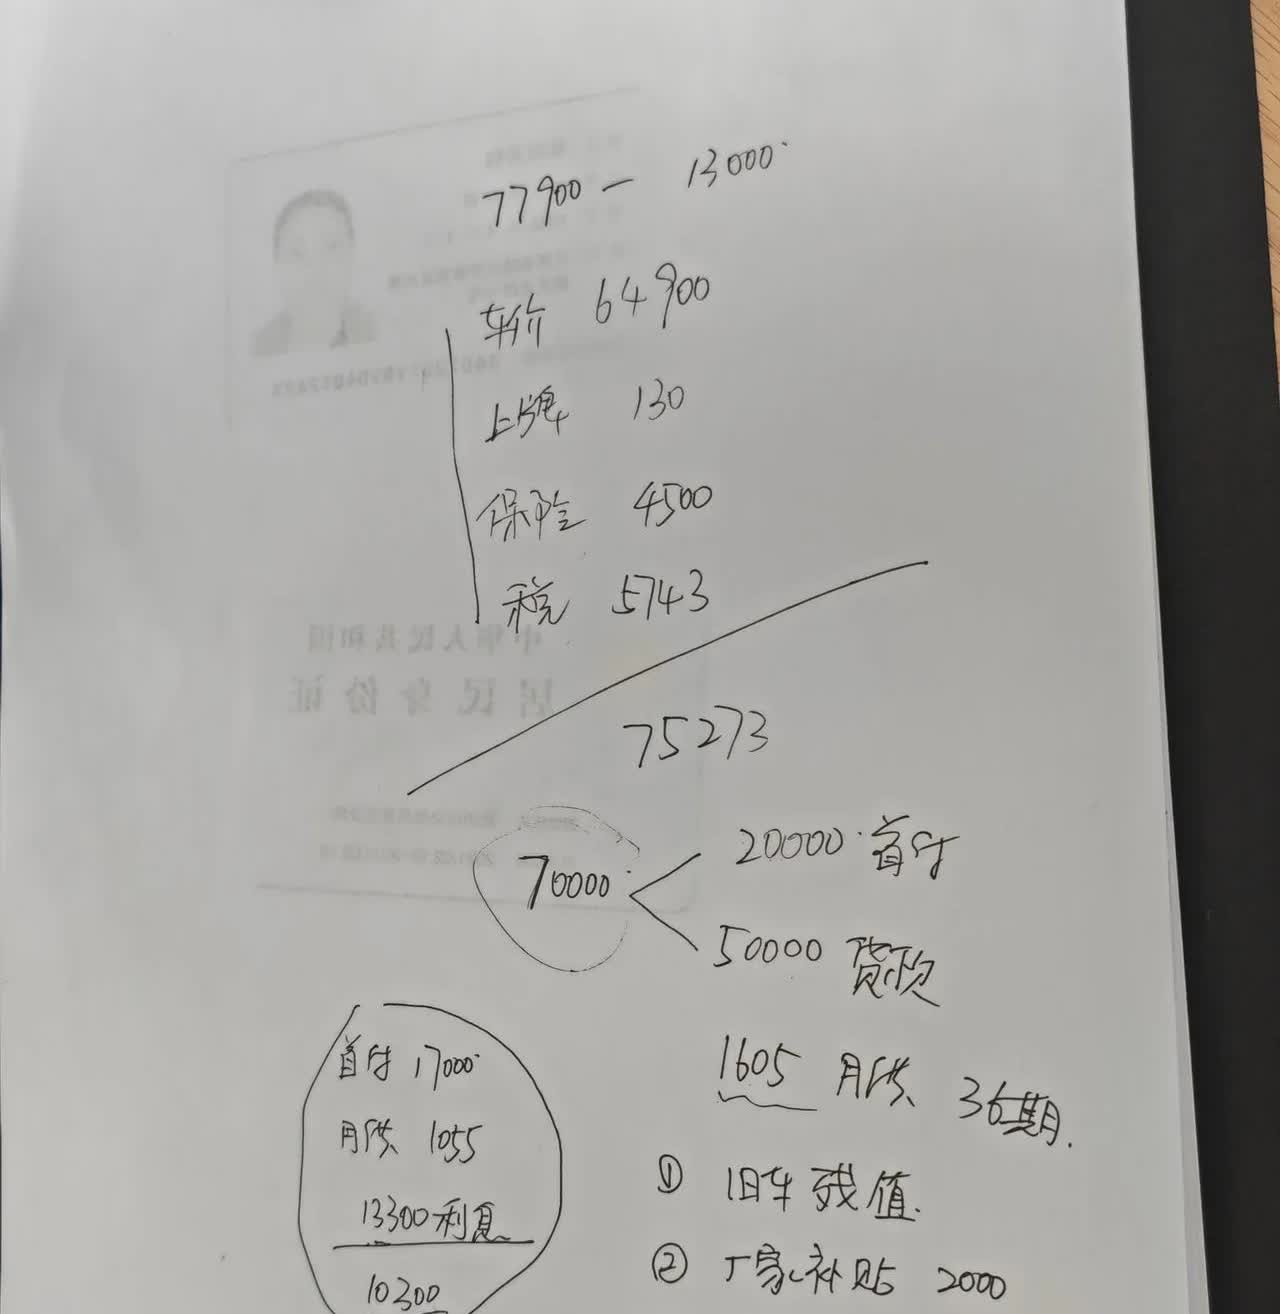 77900 — 13000
车价 64900
上牌 130
保险 4500
税 5743
75273
70000
20000 首付
50000 贷款
1605 月供 36期.
① 旧车残值.
② 厂家补贴 2000
首付 17000
月供 1055
13300利息
10300
中华人民共和国
居民身份证